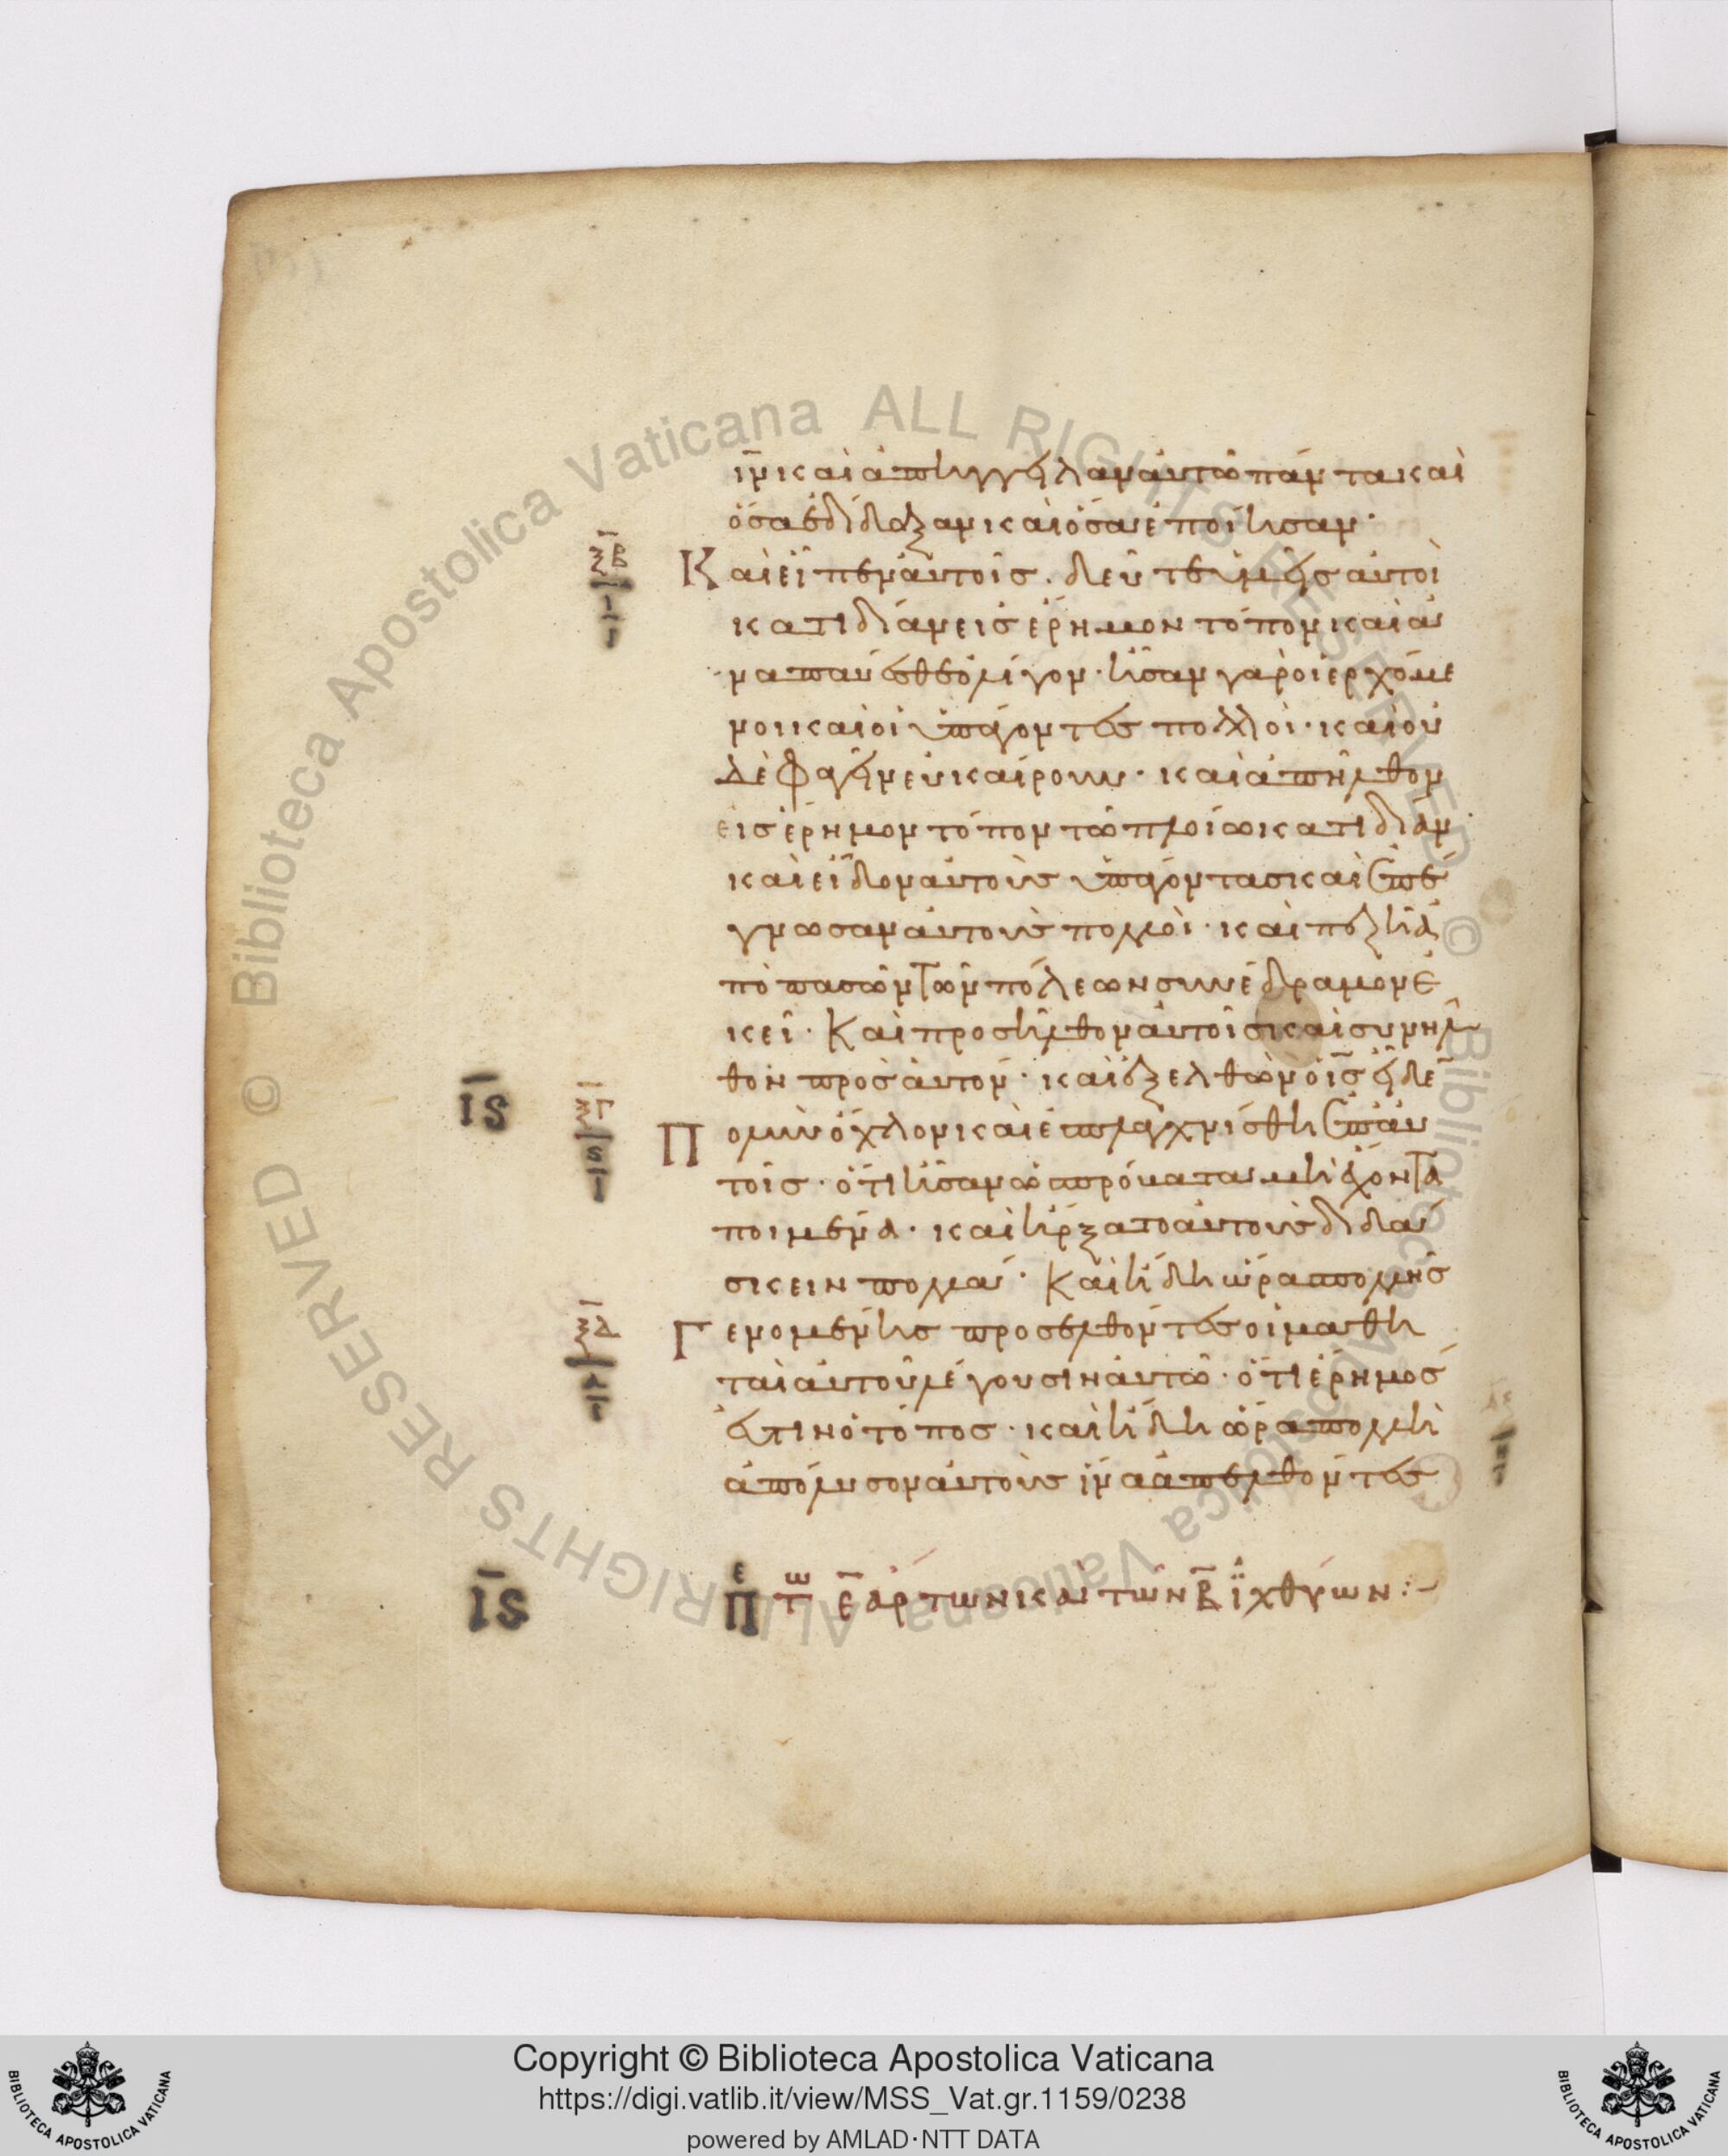 ιν̄ καὶ ἀπήγγειλαν αὐτῶ πάντα καὶ
ὅσα ἐδίδαξαν καὶ ὅσα ἐποίησαν·
ξ̄β̄
Καὶ εἶπεν αὐτοῖς. δεῦτε ὑμεῖς αὐτοὶ
κατιδίαν εἰς ἔρημον τόπον καὶ ἀ
ναπαύεσθε ὀλίγον· ἦσαν γὰρ οἱ ἐρχόμε
νοι καὶ οἱ ὑπάγοντες πολλοὶ· καὶ οὐ
δὲ φαγεῖν εὐκαίρουν· καὶ ἀπῆλθον
εἰς ἔρημον τόπον τῶ πλοίω κατιδίαν·
καὶ εἶδον αὐτοὺς ὑπάγοντας καὶ ἐπέ
γνωσαν αὐτοὺς πολλοὶ· καὶ πεζῆ ἀ
πὸ πασῶν τῶν πόλεων συνέδραμον ἐ
κεῖ· Καὶ προσῆλθον αὐτοῖς καὶ συνῆλ
θον πρὸς αὐτον· καὶ ἐξελθὼν ὁ ῑς̄ εἶδε
ῑς̄ ξ̄γ̄
Πολὺν ὄχλον καὶ ἐσπλαγχνίσθη ἐπ' αὐ
τοῖς· ὅτι ἦσαν ὡς πρόβατα μὴ ἔχοντα
ποιμένα· καὶ ἤρξατο αὐτοὺς διδά
σκειν πολλά· Καὶ ἤδη ὥρας πολλῆς
ξ̄δ̄
Γενομένης προσελθόντες οἱ μαθη
ταὶ αὐτοῦ λέγουσιν αὐτῶ· ὅτι ἔρημός
ἐστιν ὁ τόπος· καὶ ἤδη ὥρα πολλὴ
ἀπόλυσον αὐτοὺς ἵνα ἀπελθόντες
ῑς̄ πε τω ε̄ ἄρτων καὶ τῶν β̄ ἰχθύων:~
Copyright © Biblioteca Apostolica Vaticana
https://digi.vatlib.it/view/MSS_Vat.gr.1159/0238
powered by AMLAD·NTT DATA
© Biblioteca Apostolica Vaticana ALL RIGHTS RESERVED © Biblioteca Apostolica Vaticana ALL RIGHTS RESERVED